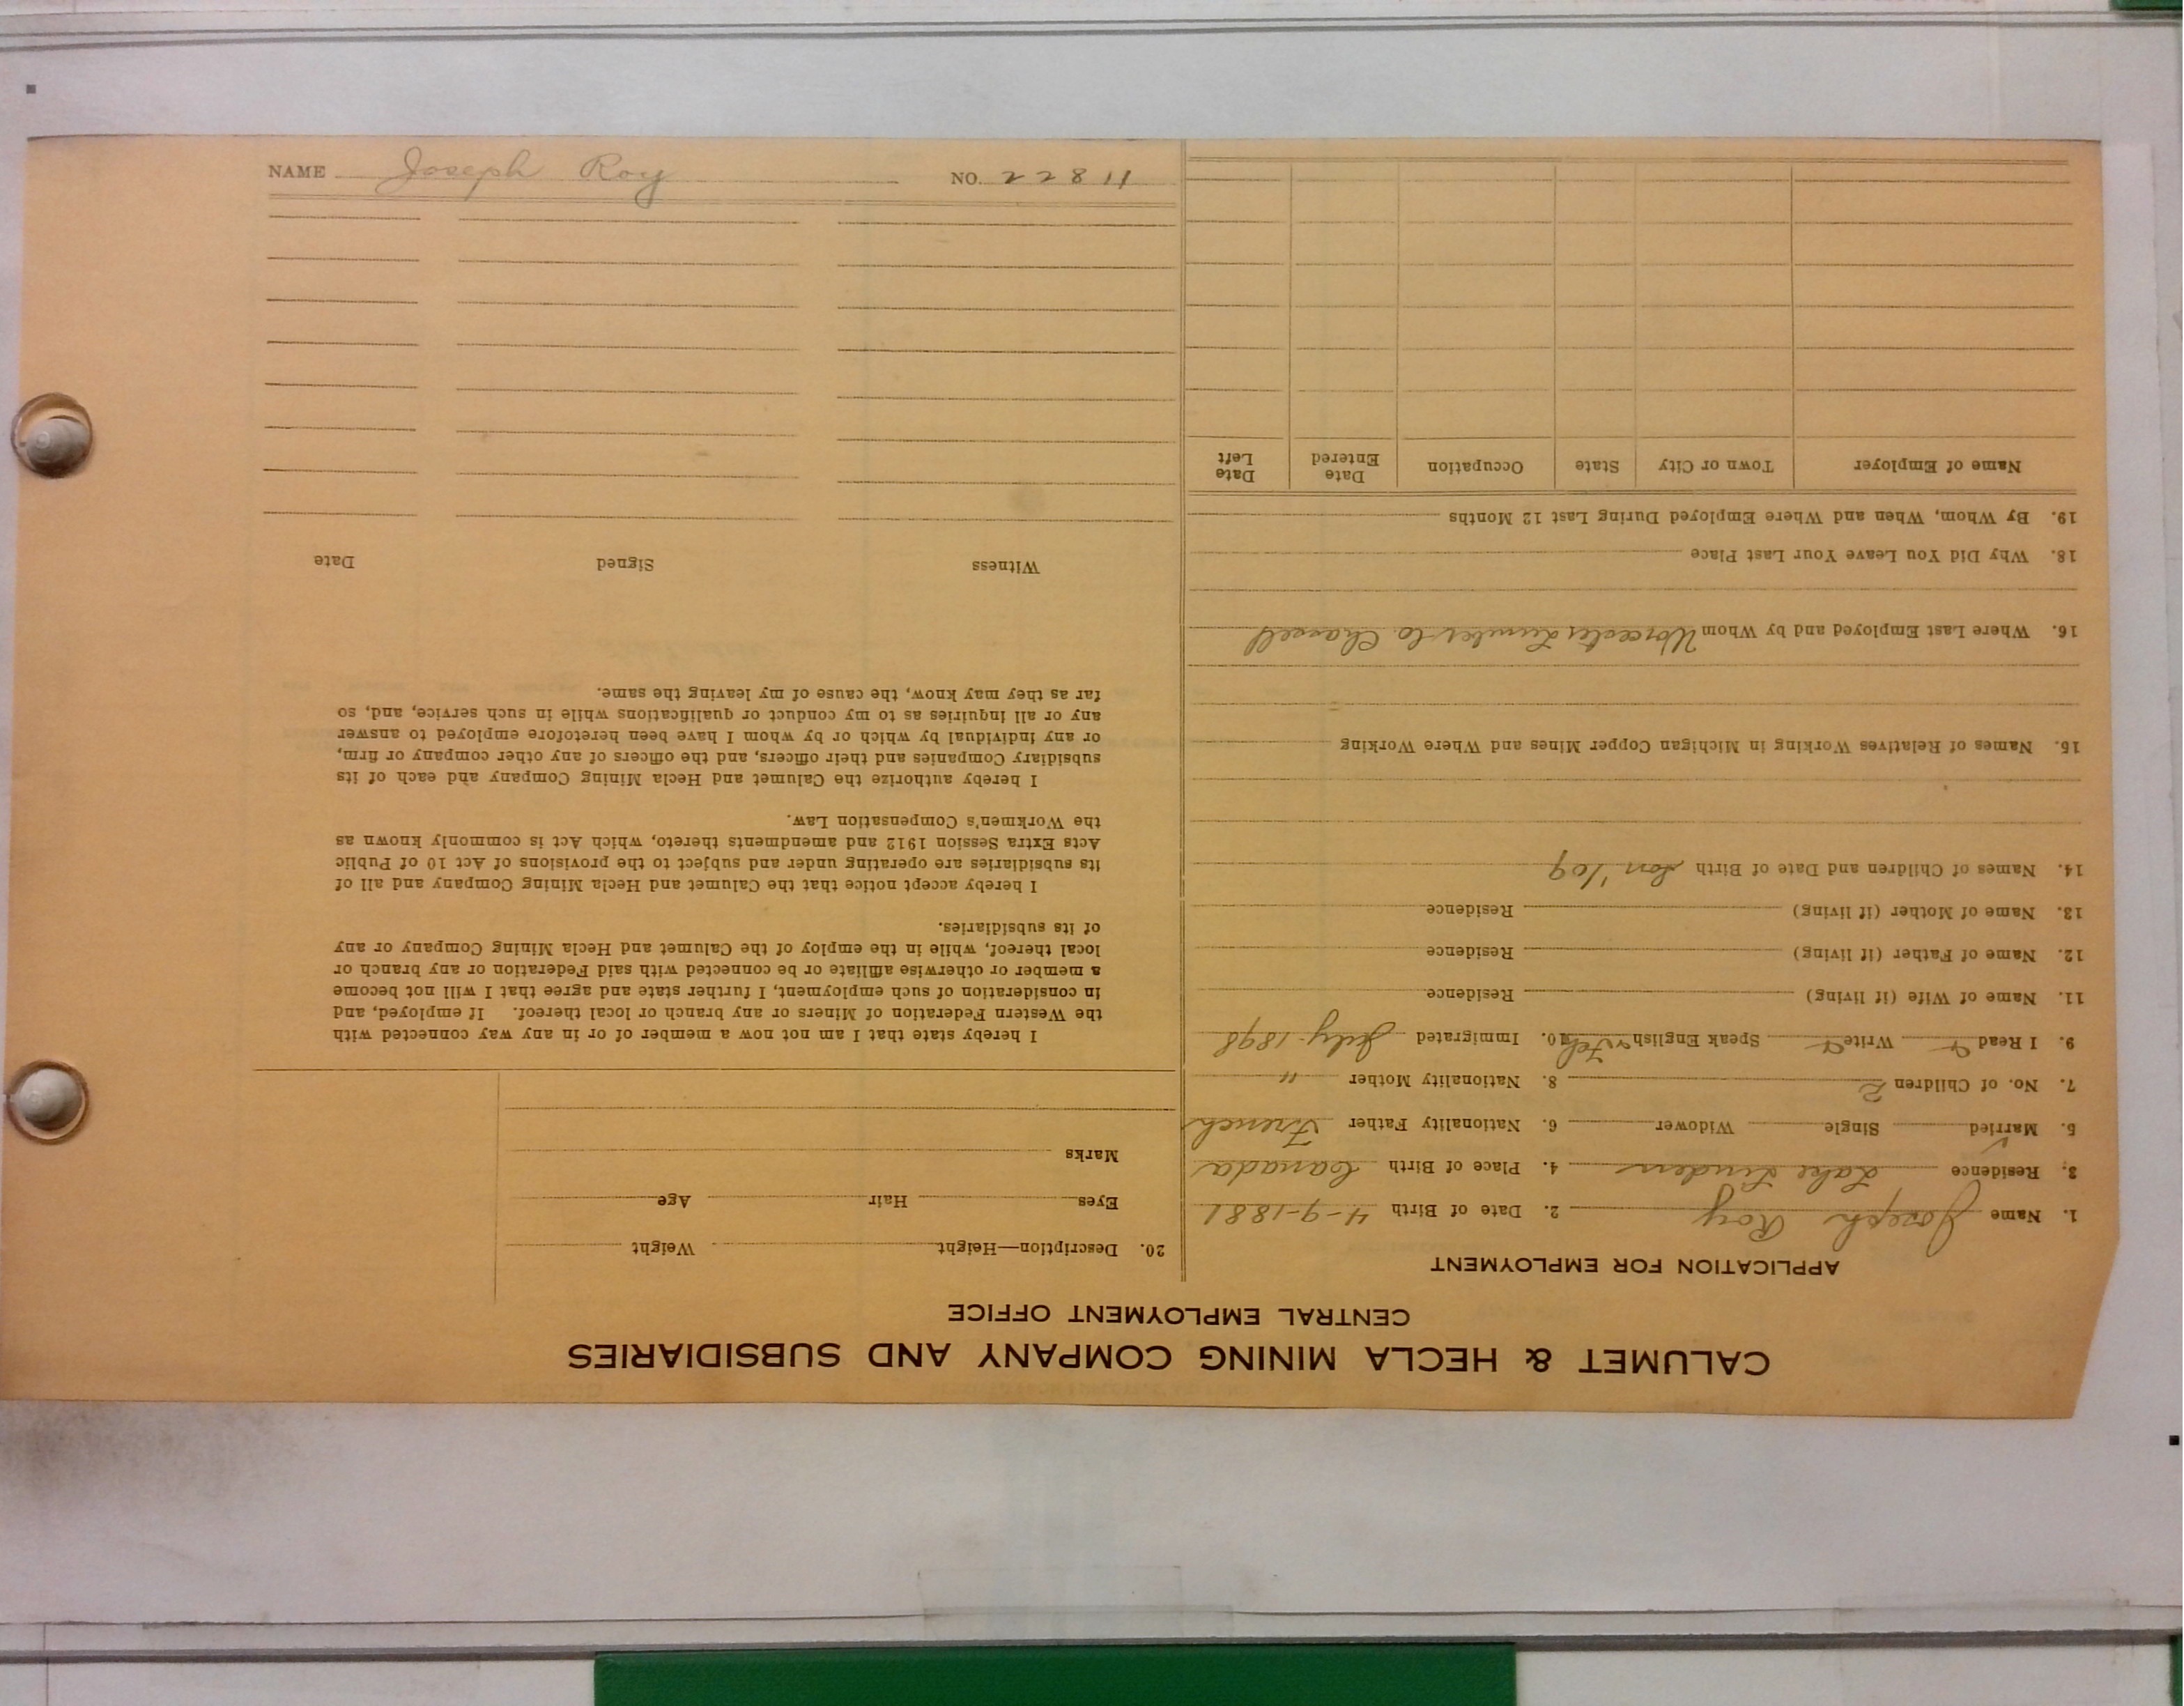 CALUMET & HECLA MINING COMPANY AND SUBSIDIARIES
CENTRAL EMPLOYMENT OFFICE
APPLICATION FOR EMPLOYMENT
1. Name Joseph Roy 2. Date of Birth 4-9-1881
3. Residence Lake Linden 4. Place of Birth Canada
5. Married ✓ Single Widower 6. Nationality Father French
7. No. of Children 2 8. Nationality Mother "
9. I Read Write Speak English 10. Immigrated July 1898
11. Name of Wife (if living) Residence
12. Name of Father (if living) Residence
13. Name of Mother (if living) Residence
14. Names of Children and Date of Birth
15. Names of Relatives Working in Michigan Copper Mines and Where Working
16. Where Last Employed and by Whom Worcester Lumber Co Chassell
18. Why Did You Leave Your Last Place
19. By Whom, When and Where Employed During Last 12 Months
Name of Employer Town or City State Occupation Date Entered Date Left
20. Description—Height Weight
Eyes Hair Age
Marks
I hereby state that I am not now a member of or in any way connected with
the Western Federation of Miners or any branch or local thereof. If employed, and
in consideration of such employment, I further state and agree that I will not become
a member or otherwise affiliate or be connected with said Federation or any branch or
local thereof, while in the employ of the Calumet and Hecla Mining Company or any
of its subsidiaries.
I hereby accept notice that the Calumet and Hecla Mining Company and all of
its subsidiaries are operating under and subject to the provisions of Act 10 of Public
Acts Extra Session 1912 and amendments thereto, which Act is commonly known as
the Workmen's Compensation Law.
I hereby authorize the Calumet and Hecla Mining Company and each of its
subsidiary Companies and their officers, and the officers of any other company or firm,
or any individual by which or by whom I have been heretofore employed to answer
any or all inquiries as to my conduct or qualifications while in such service, and, so
far as they may know, the cause of my leaving the same.
Witness Signed Date
NAME Joseph Roy NO. 11822